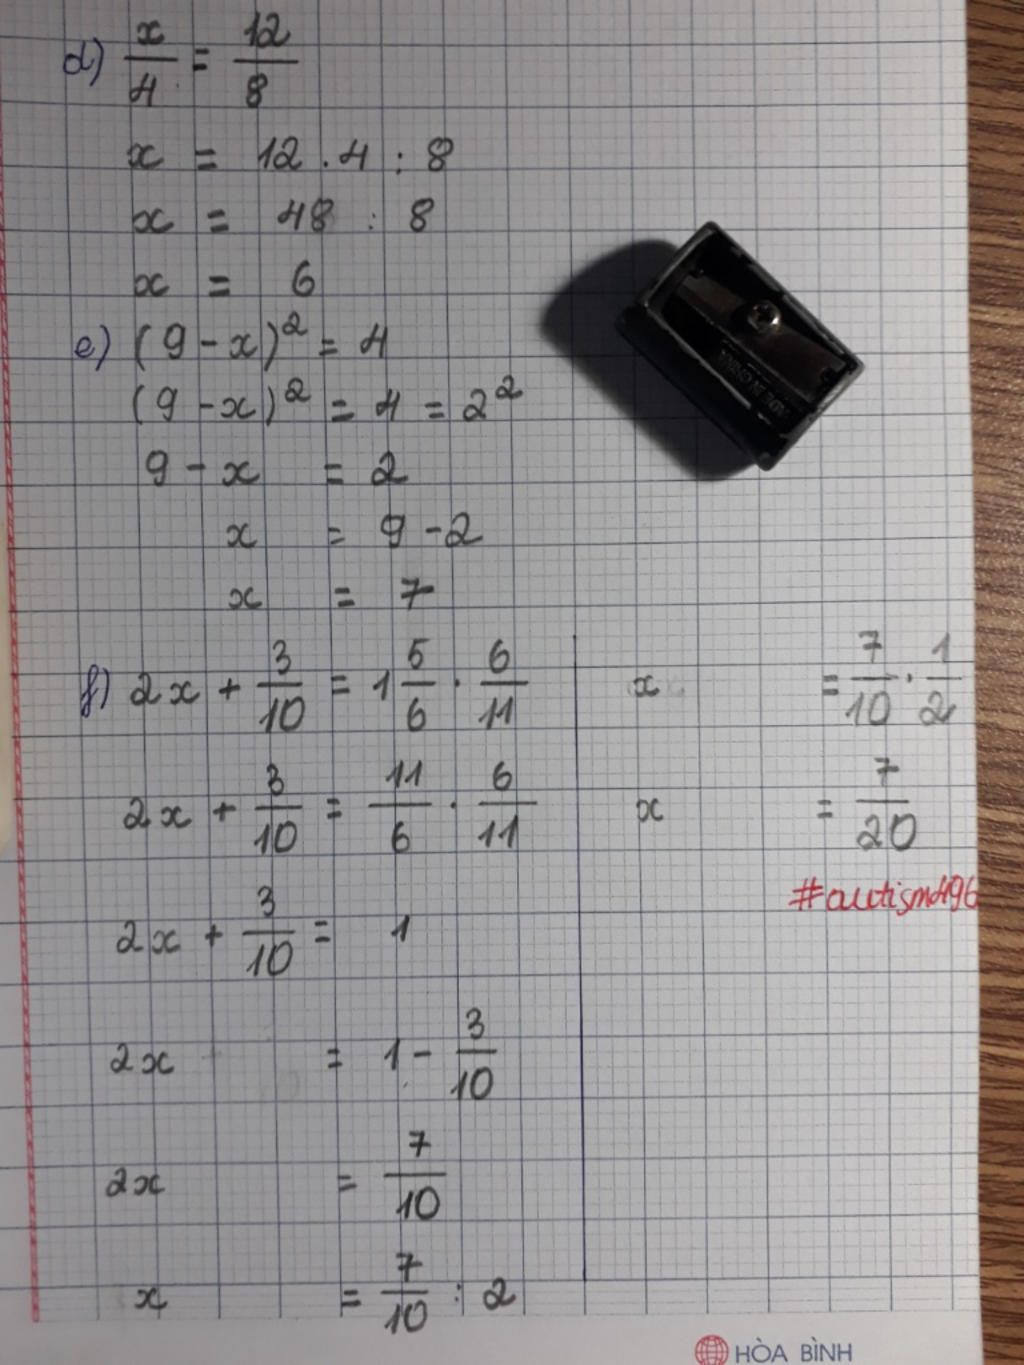 d) x/4 = 12/8
x = 12 . 4 : 8
x = 48 : 8
x = 6
e) (9 - x)² = 4
(9 - x)² = 4 = 2²
9 - x = 2
x = 9 - 2
x = 7
f) 2x + 3/10 = 1 5/6 . 6/11
2x + 3/10 = 11/6 . 6/11
2x + 3/10 = 1
2x = 1 - 3/10
2x = 7/10
x = 7/10 : 2
x = 7/10 . 1/2
x = 7/20
#autism496
MADE IN CHINA
HÒA BÌNH